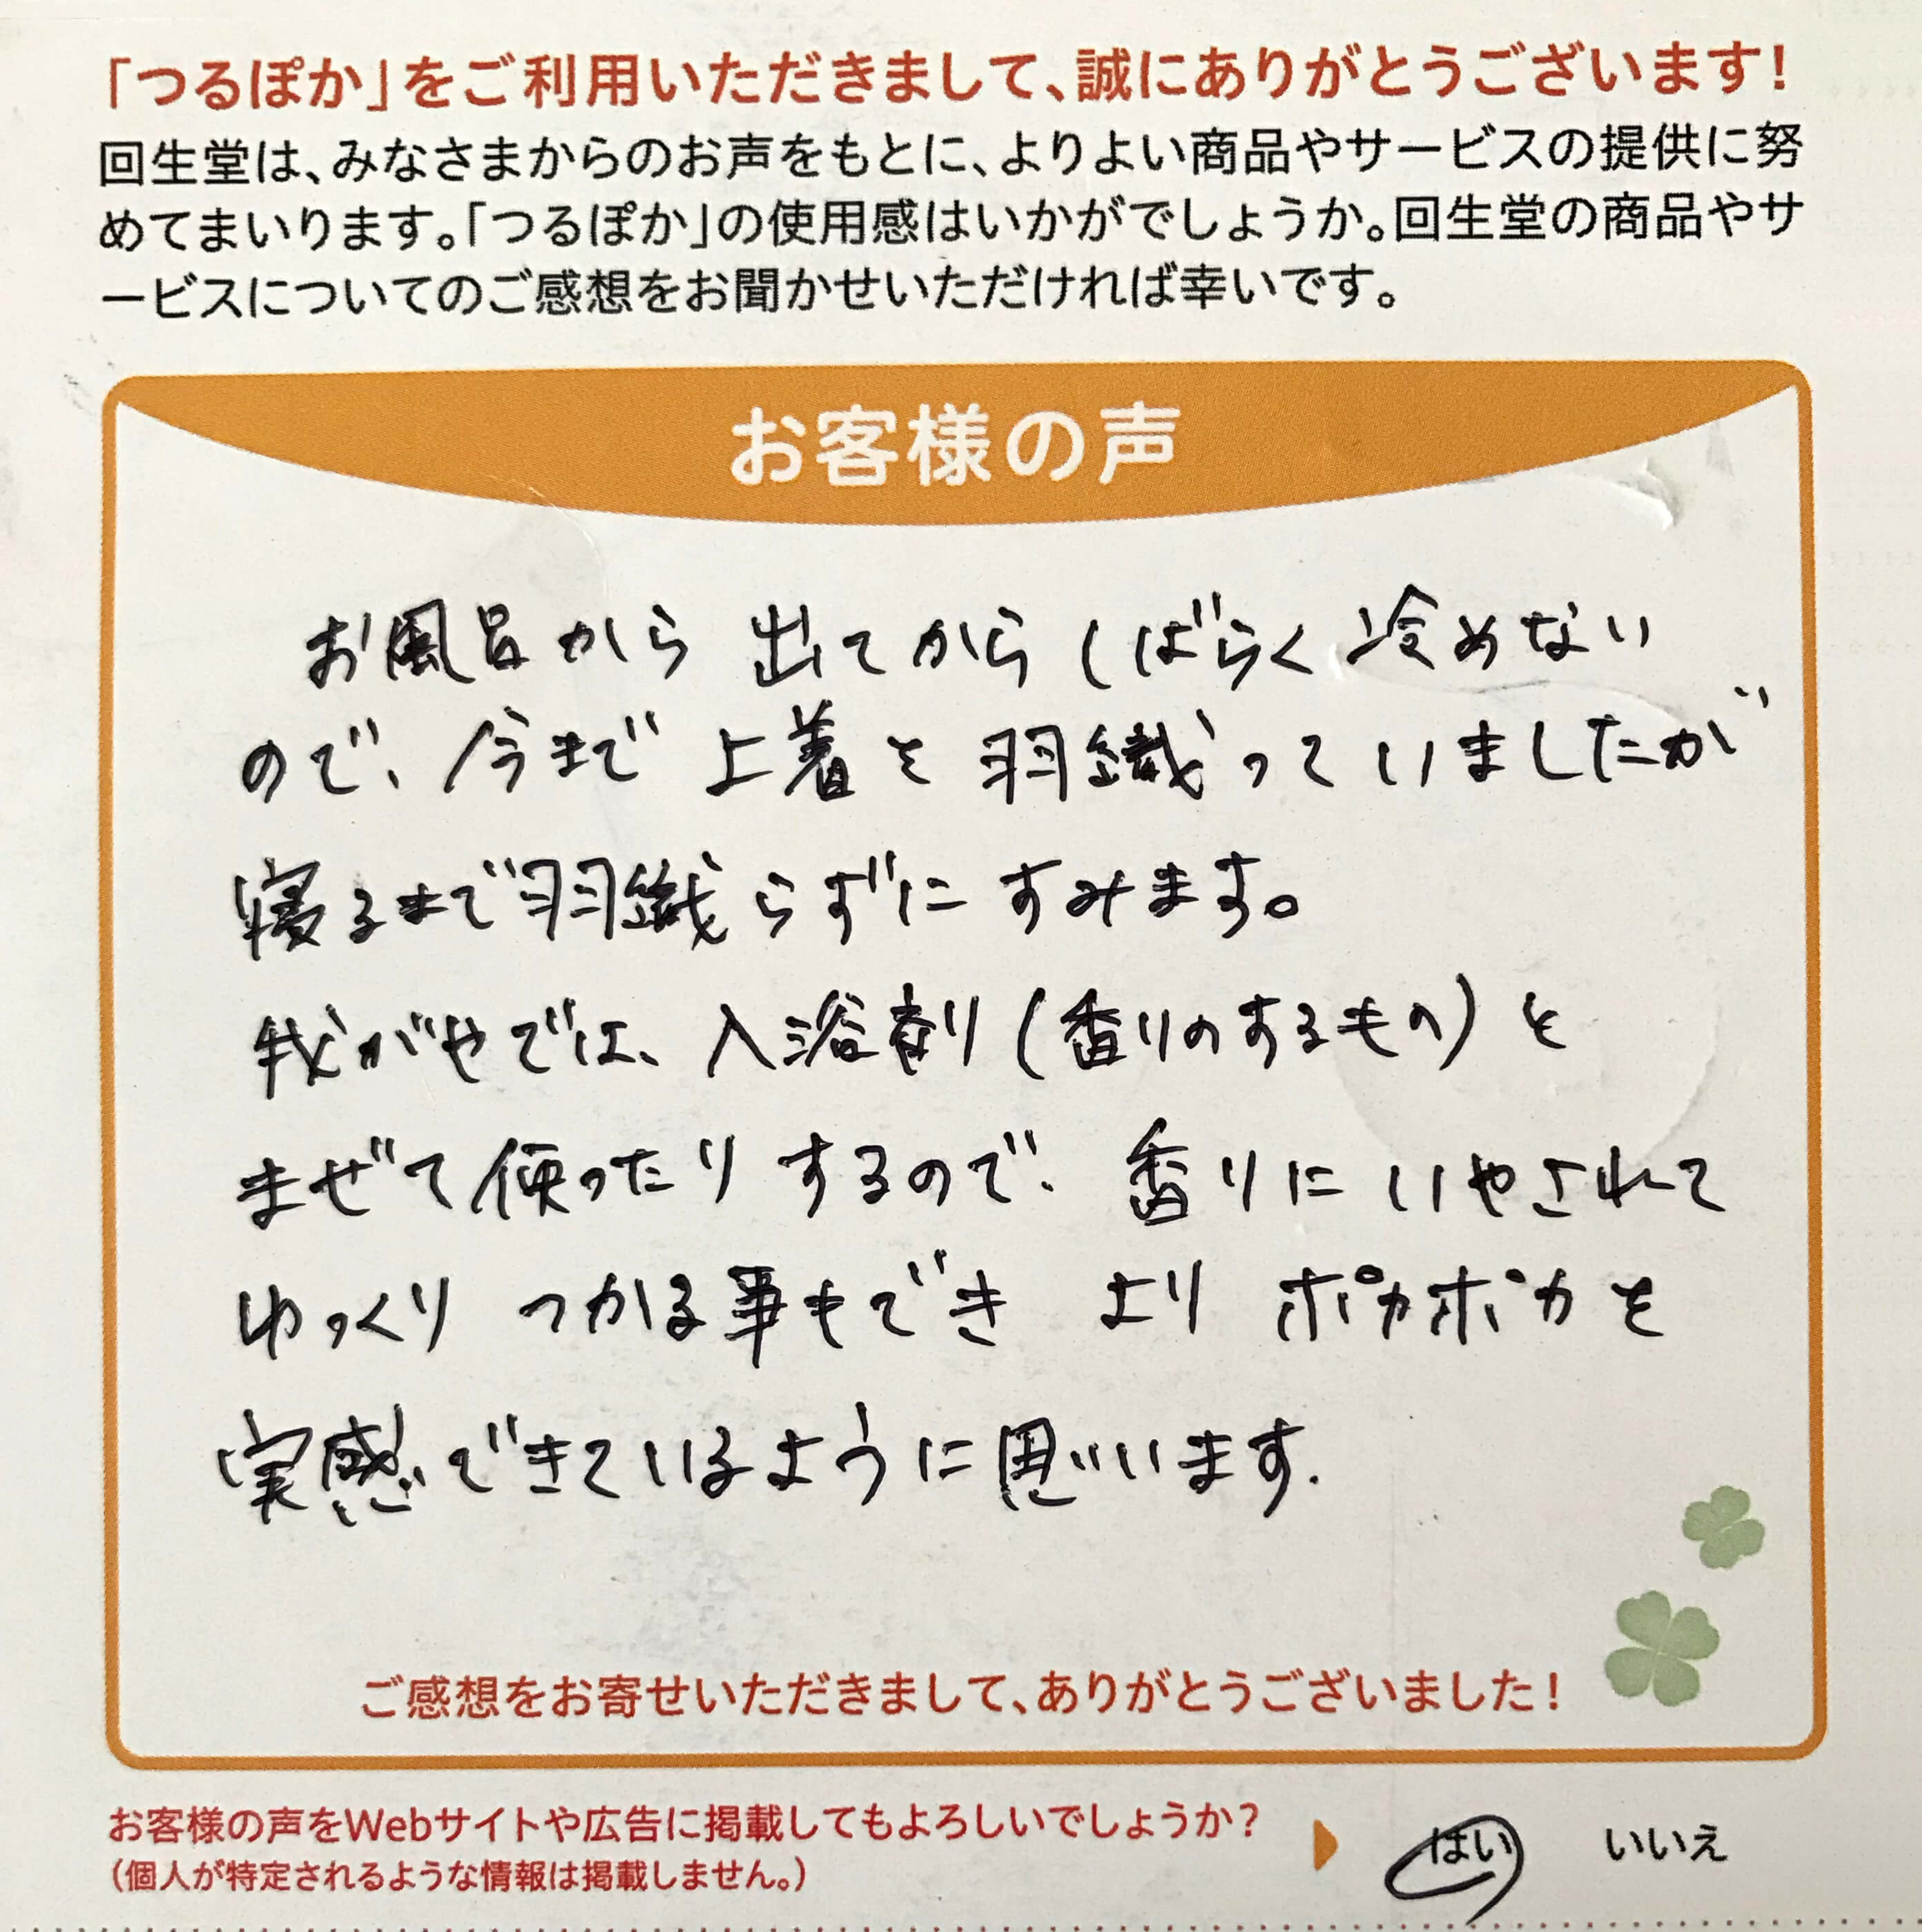 「つるぽか」をご利用いただきまして、誠にありがとうございます!
回生堂は、みなさまからのお声をもとに、よりよい商品やサービスの提供に努
めてまいります。「つるぽか」の使用感はいかがでしょうか。回生堂の商品やサ
ービスについてのご感想をお聞かせいただければ幸いです。
お客様の声
お風呂から 出てから しばらく 冷めない
ので、今まで 上着を 羽織っていましたが
寝るまで羽織らずに すみます。
我がやでは、入浴剤(香りのするもの)を
まぜて使ったりするので、香りにいやされて
ゆっくり つかる事もでき より ポカポカを
実感できているように思います.
ご感想をお寄せいただきまして、ありがとうございました!
お客様の声をWebサイトや広告に掲載してもよろしいでしょうか? はい いいえ
(個人が特定されるような情報は掲載しません。)